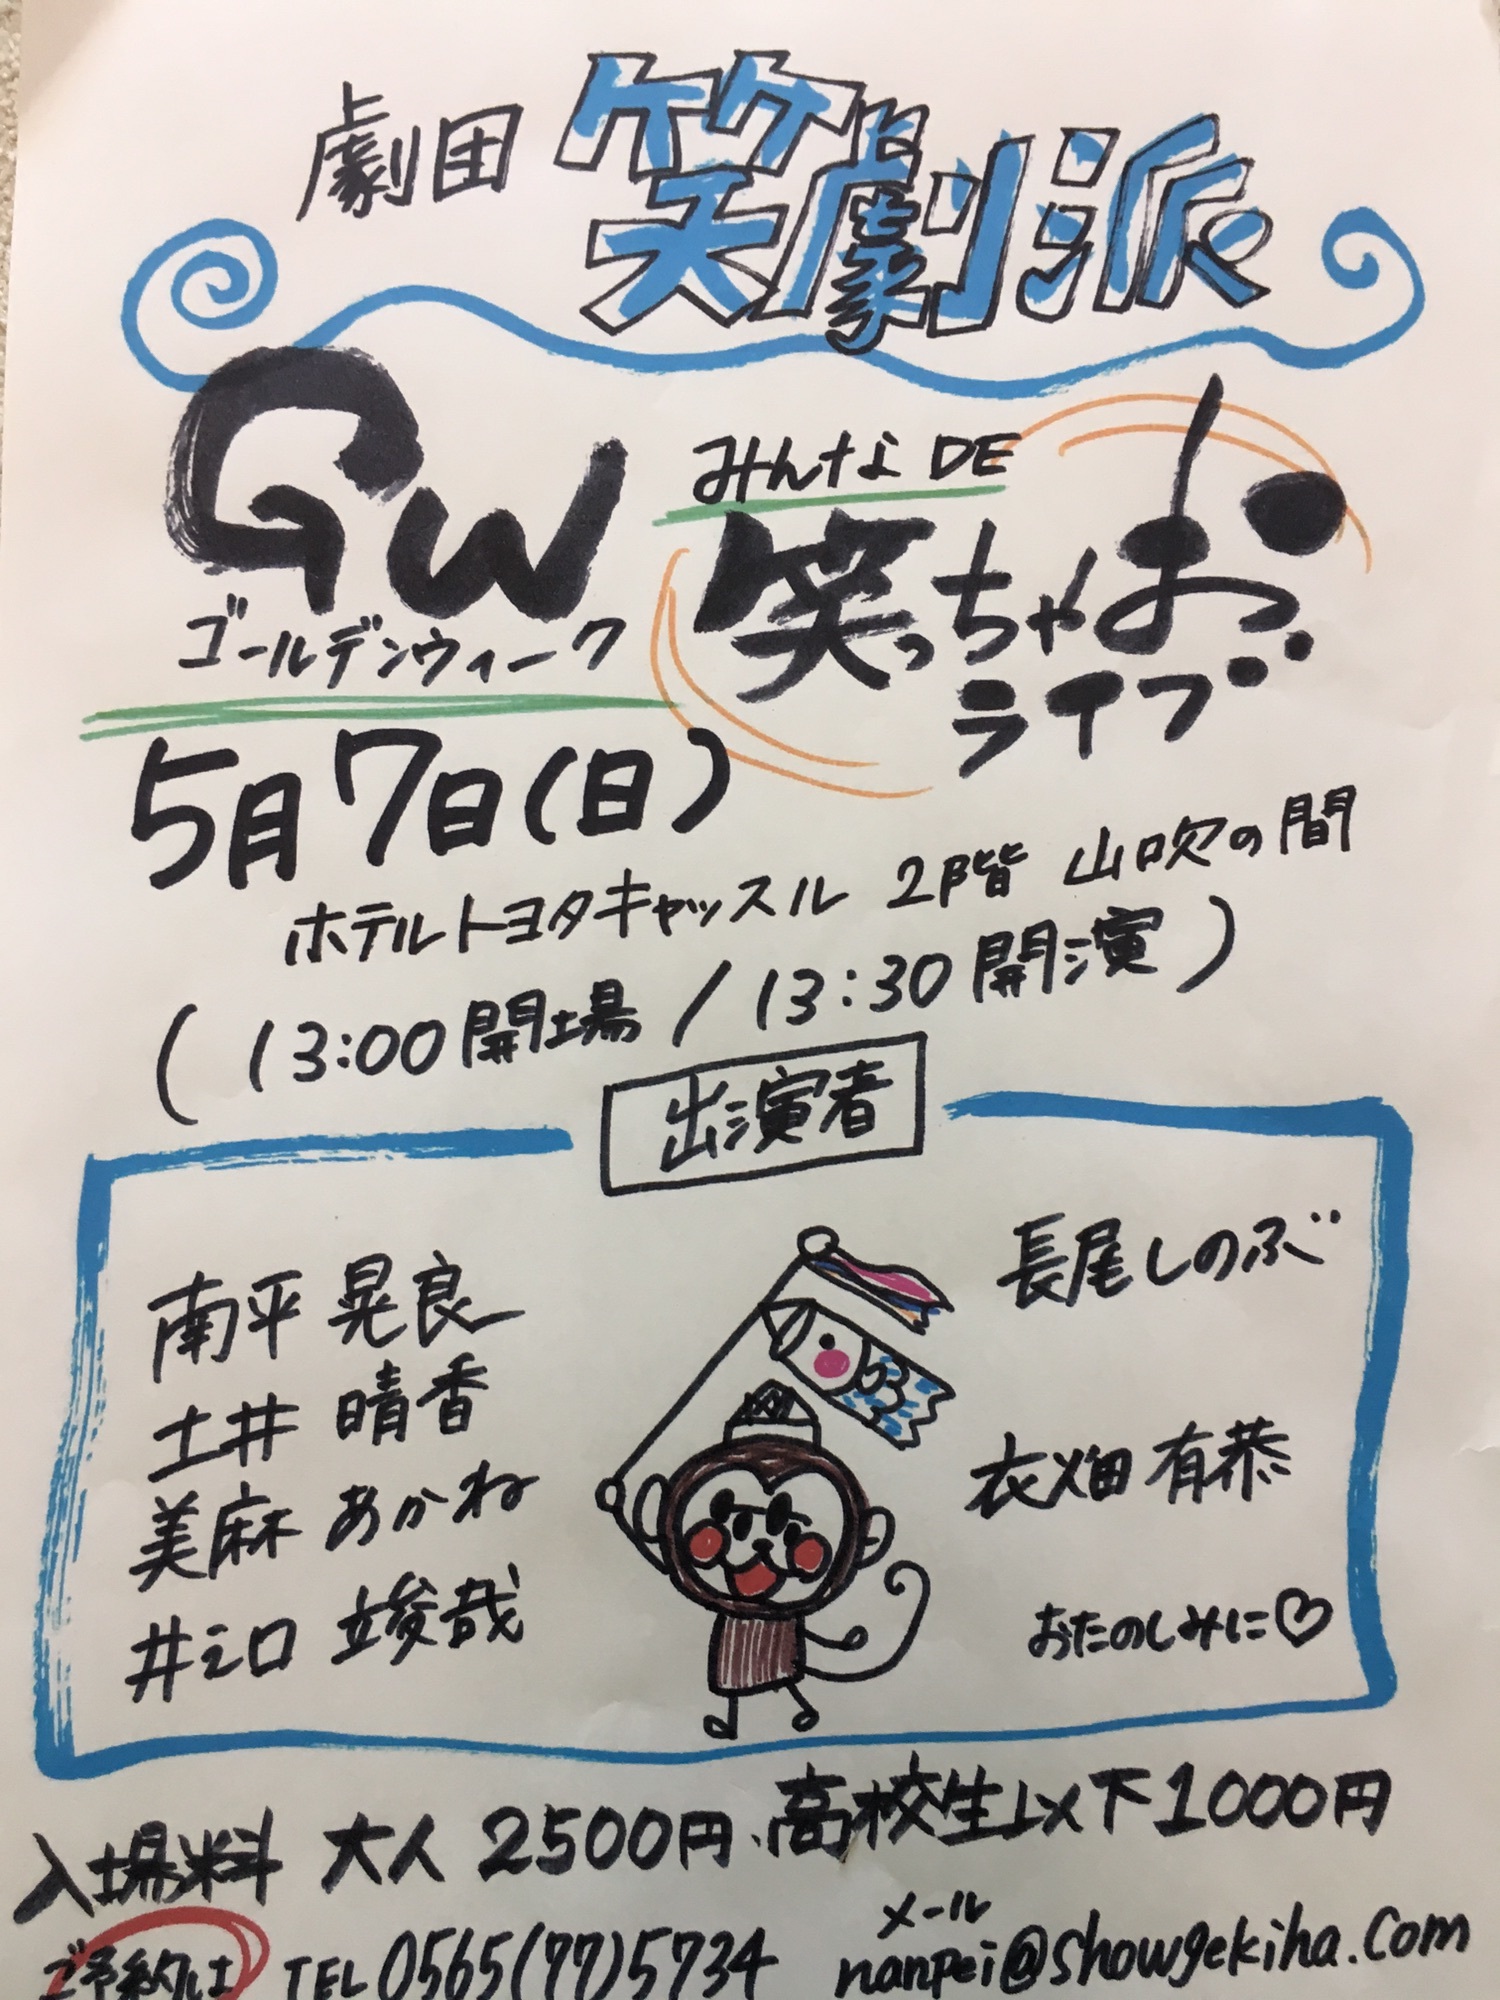 劇団 笑劇派
GW
ゴールデンウィーク
みんなDE
笑っちゃお
ライブ
5月7日(日)
ホテルトヨタキャッスル 2階 山吹の間
(13:00開場/13:30開演)
出演者
南平 晃良
土井 晴香
美麻 あかね
井之口 竣哉
長尾しのぶ
衣畑 有恭
おたのしみに♡
入場料 大人 2500円、高校生以下1000円
ご予約は TEL 0565(77)5734
メール
nanpei@showgekiha.com